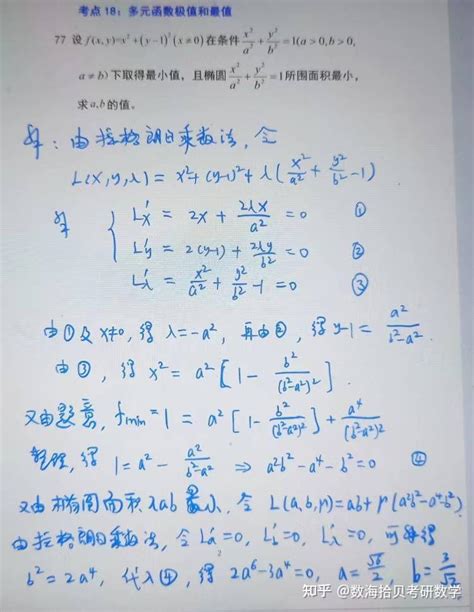 考点 18：多元函数极值和最值
77 设 f(x,y)=x²+(y-1)²(x≠0)在条件 x²/a²+y²/b²=1(a>0,b>0,
a≠b)下取得最小值，且椭圆 x²/a²+y²/b²=1所围面积最小，
求a,b的值。
解：由拉格朗日乘数法，令
L(x,y,λ) = x²+(y-1)²+λ(x²/a²+y²/b²-1)
则 { L'x = 2x + 2λx/a² = 0 ①
L'y = 2(y-1) + 2λy/b² = 0 ②
L'λ = x²/a² + y²/b² - 1 = 0 ③
由①及 x≠0，得 λ=-a²，再由②，得 y-1 = a²/(b²-a²)
由③，得 x² = a²[1 - b²/(b²-a²)²]
又由题意，fmin = 1 = a²[1 - b²/(b²-a²)²] + a⁴/(b²-a²)²
整理，得 1 = a² - a²/(b²-a²) ⇒ a²b²-a⁴-b²=0 ④
又由椭圆面积 πab 最小，令 L(a,b,μ)=ab+μ(a²b²-a⁴-b²)
由拉格朗日乘数法，令 L'a=0, L'b=0, L'λ=0, 可解得
2
b²=2a⁴，代入④，得 2a⁶-3a⁴=0, a=√6/2, b=3/√2
知乎 @数海拾贝考研数学